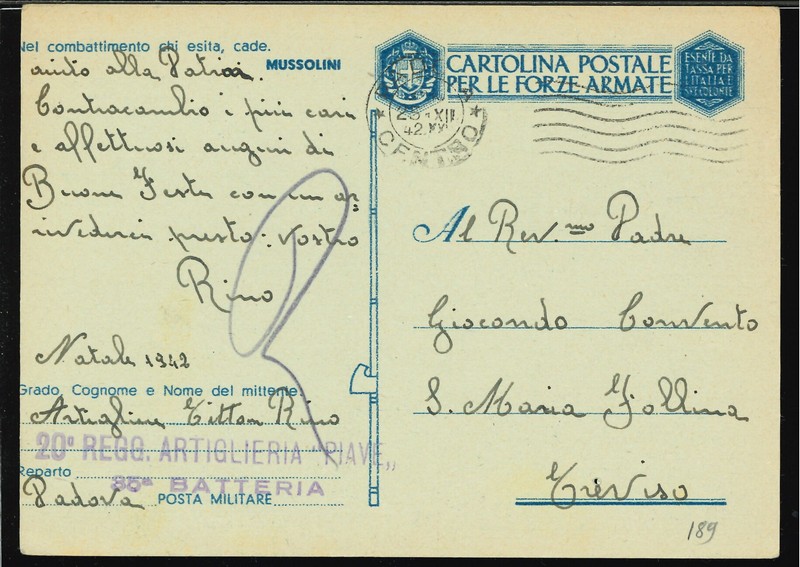 Nel combattimento chi esita, cade.
MUSSOLINI
aiuto alla Patria.
Contracambio i più cari
e affettuosi auguri di
Buone Feste con un ar
rivederci presto. Vostro
Rino
Natale 1942
Grado, Cognome e Nome del mittente
Artigliere Titton Rino
20º REGG. ARTIGLIERIA "PIAVE"
Reparto
BATTERIA
Padova POSTA MILITARE
CARTOLINA POSTALE
PER LE FORZE ARMATE
ESENTE DA
TASSA PER
L'ITALIA E
SUE COLONIE
XII
42.XXI
CENTRO
Al Rev.mo Padre
Giocondo Convento
S. Maria Follina
Treviso
189